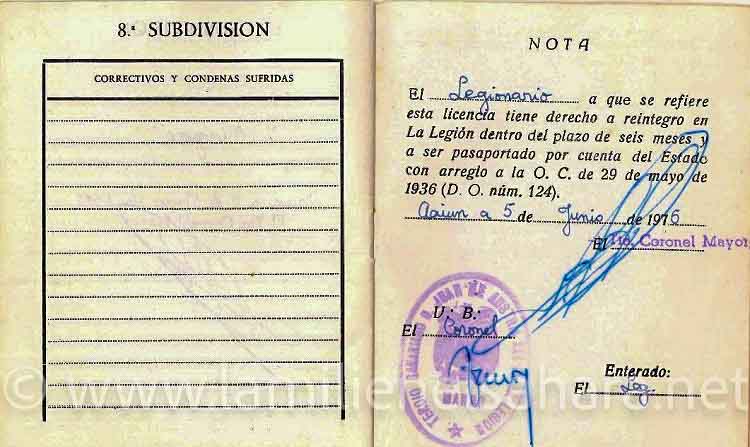 8.ª SUBDIVISION
CORRECTIVOS Y CONDENAS SUFRIDAS
NOTA
El Legionario a que se refiere
esta licencia tiene derecho a reintegro en
La Legión dentro del plazo de seis meses y
a ser pasaportado por cuenta del Estado
con arreglo a la O. C. de 29 de mayo de
1936 (D. O. núm. 124).
Aaiun a 5 de Junio de 1975
El Tte. Coronel Mayor
V.º B.º
El Coronel
TERCIO SAHARIANO D. JUAN DE AUSTRIA
LEGION
MANDO
Enterado:
El Leg.
© www.lamiliencelsahara.net